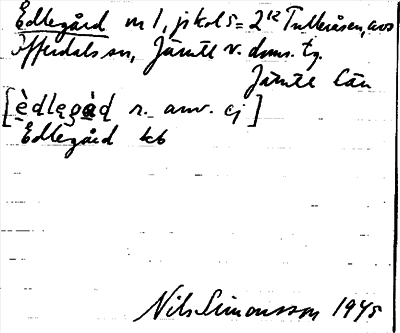 Edlegård m 1, jfkol 5 = 2 12 Tulleråsen, avs
Offerdals sn, Jämtl v. doms. tg.
Jämtl län
[èdlegàd n. anv. ej]
Edlegård kb
Nils Simonsson 1945